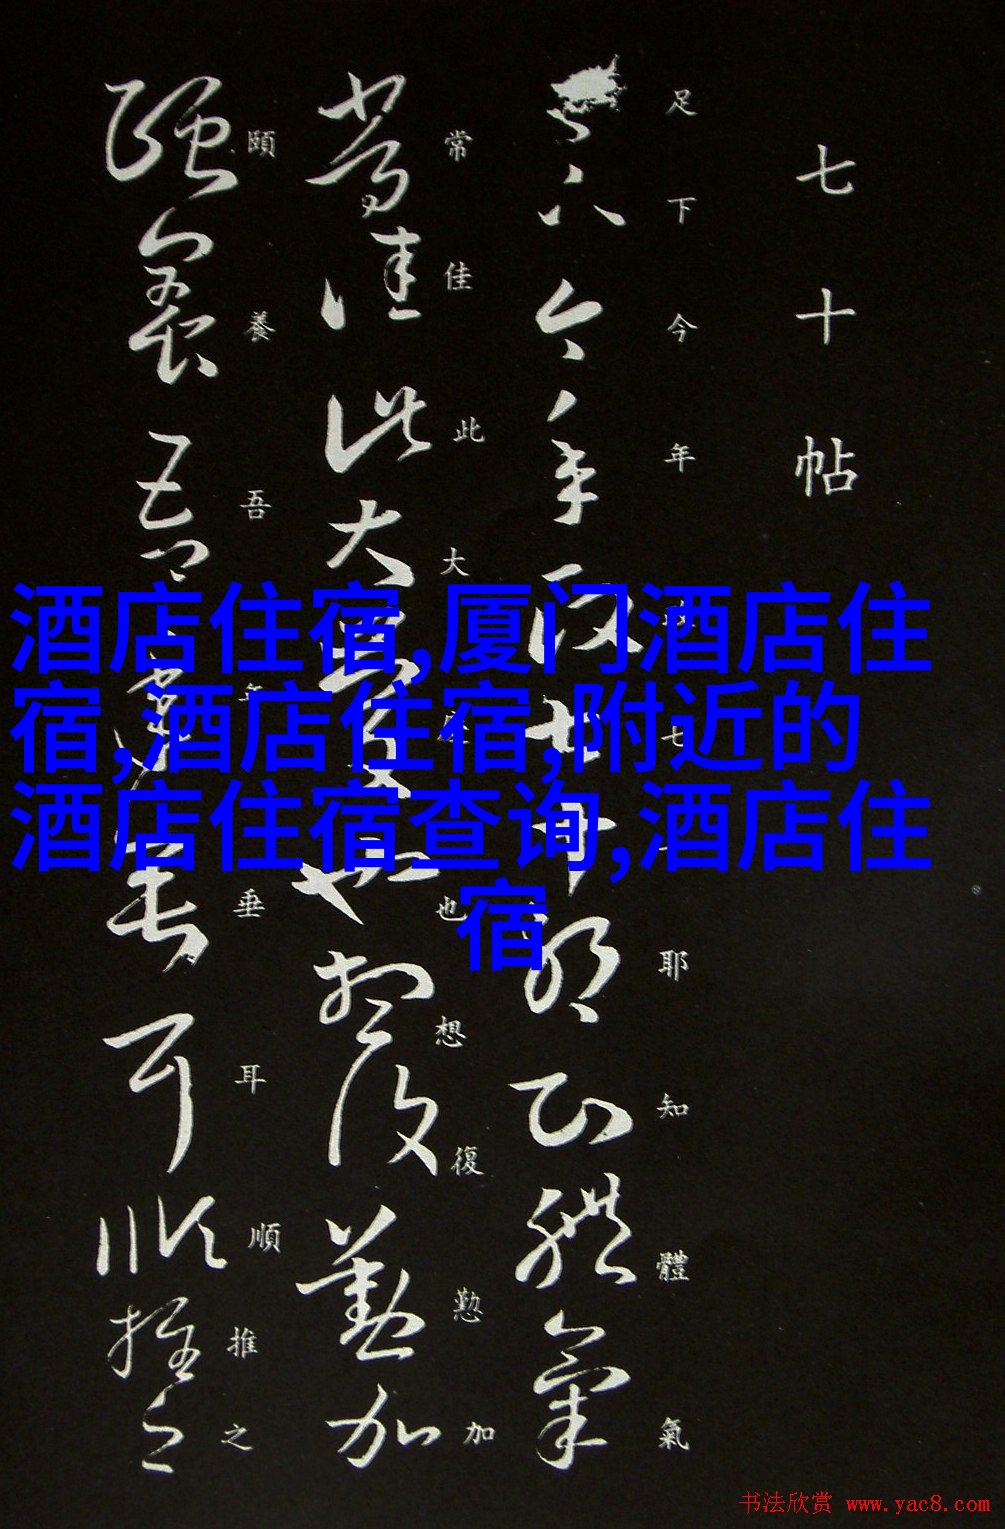 七十帖
足下今年政七十耶知體氣
常佳此大慶也想復懃加
頤養吾年垂耳順推之
酒店住宿,厦门酒店住
宿,酒店住宿,附近的
酒店住宿查询,酒店住
宿
书法欣赏 www.yac8.com